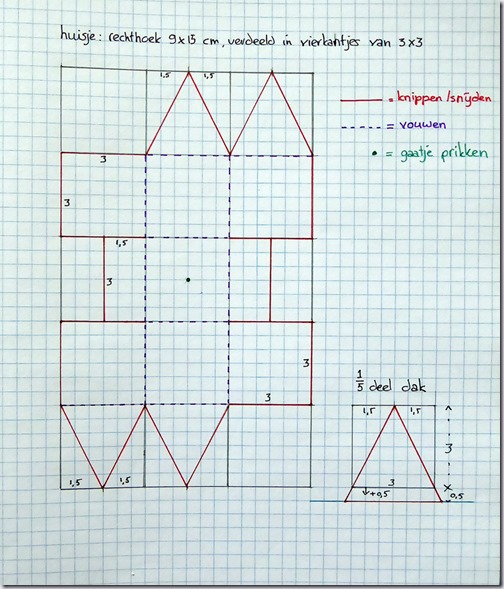 huisje: rechthoek 9x15 cm, verdeeld in vierkantjes van 3x3
1,5 1,5
= knippen/snijden
= vouwen
= gaatje prikken
3
3
1,5
3
3
3
1,5 1,5
1/5 deel dak
1,5 1,5
3
3
+0,5
0,5